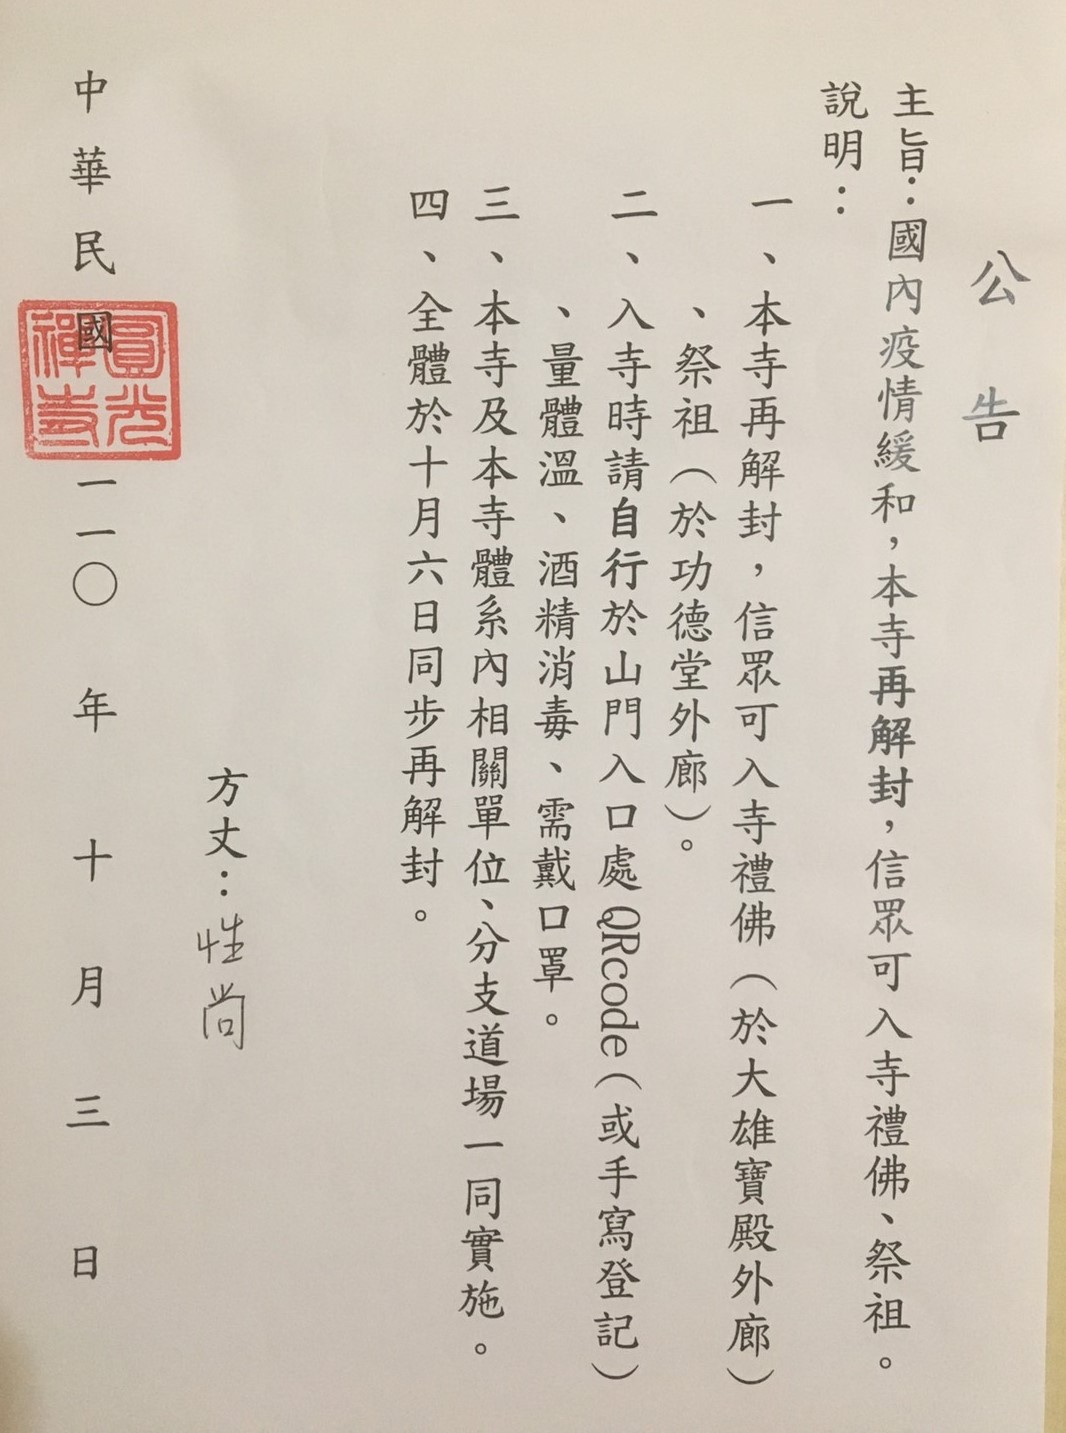 公告
主旨：國內疫情緩和，本寺再解封，信眾可入寺禮佛、祭祖。
說明：
一、本寺再解封，信眾可入寺禮佛（於大雄寶殿外廊）
、祭祖（於功德堂外廊）。
二、入寺時請自行於山門入口處QRcode（或手寫登記）
、量體溫、酒精消毒、需戴口罩。
三、本寺及本寺體系內相關單位、分支道場一同實施。
四、全體於十月六日同步再解封。
方丈：性尚
中華民國一一〇年十月三日
圓光禪寺